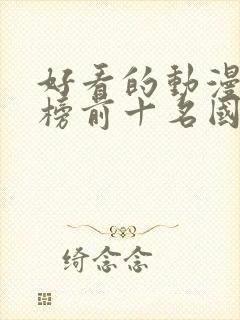 好看的動漫
榜前十名國
绮念念